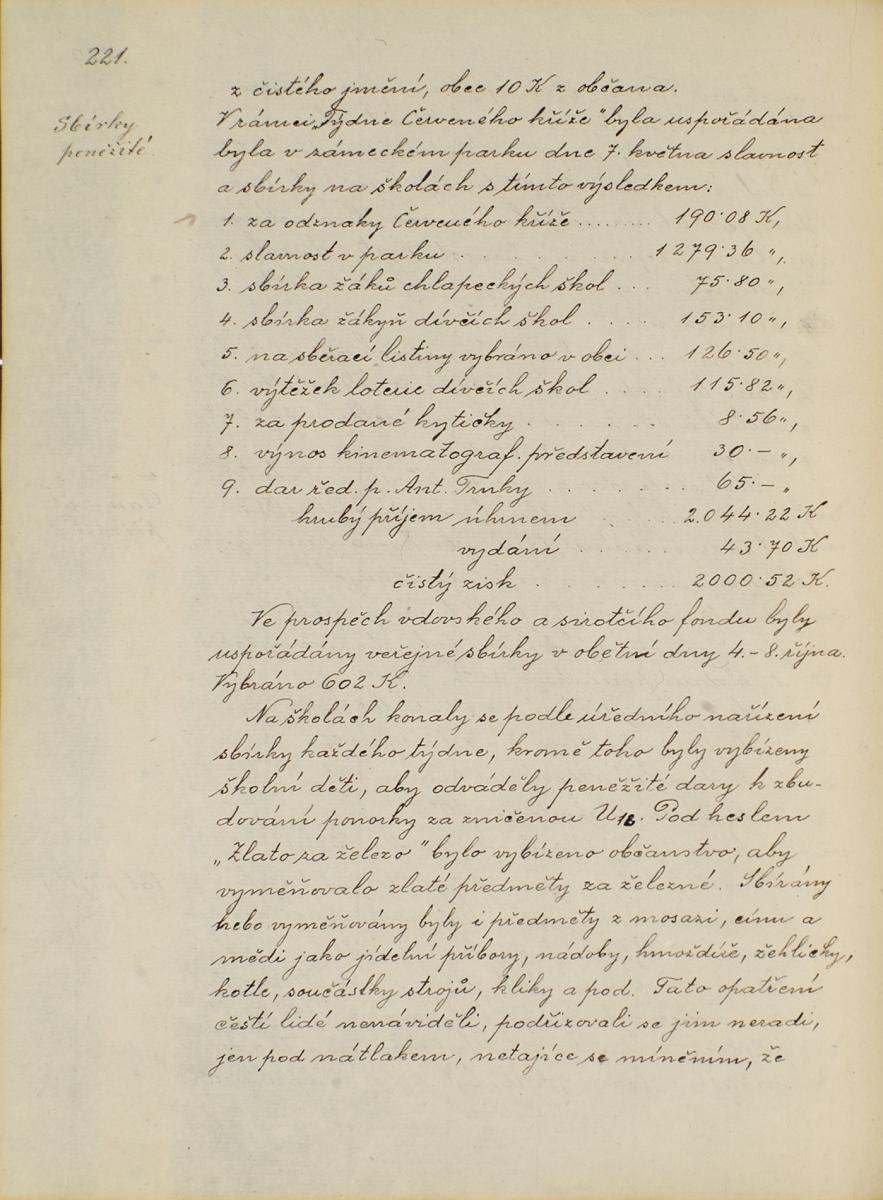 221.
Sbírky
peněžité.
z čistého jmění, obec 10 K z občana.
V rámci „Týdne Červeného kříže" byla uspořádána
byla v zámeckém parku dne 7. května slavnost
a sbírky na školách s tímto výsledkem:
1. za odznaky Červeného kříže ....... 190·08 K,
2. slavnost v parku . . . . . . . 1279·36 „,
3. sbírka žáků chlapeckých škol . . . 75·80 „,
4. sbírka žákyň dívčích škol . . . . 153·10 „,
5. na sběrací listiny vybráno v obci . . . 126·50 „,
6. výtěžek loterie dívčích škol . . . . 115·82 „,
7. za prodané kytičky . . . . . . 8·56 „,
8. výnos kinematograf. představení 30·— „,
9. dar řed. p. Ant. Trnky . . . . . . 65·— „
hrubý příjem úhrnem . . . . 2.044·22 K
vydání . . . . . 43·70 K
čistý zisk . . . . . . 2000·52 K.
Ve prospěch vdovského a sirotčího fondu byly
uspořádány veřejné sbírky v obětní dny 4.–8. října.
Vybráno 602 K.
Na školách konaly se podle úředního nařízení
sbírky každého týdne, kromě toho byly vybízeny
školní děti, aby odváděly peněžité dary k zbu-
dování ponorky za zničenou U
. Pod heslem
„Zlato za železo" bylo vybízeno občanstvo, aby
vyměňovalo zlaté předměty za železné. Sbírány
nebo vyměňovány byly i předměty z mosazi, cínu a
mědi jako jídelní příbory, nádoby, hmoždíře, žehličky,
kotle, součástky strojů, kliky a pod. Tato opatření
čeští lidé nenáviděli, podřizovali se jim neradi,
jen pod nátlakem, netajíce se míněním, že